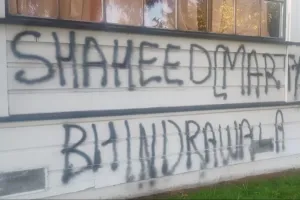 SHAHEED[MARTY
BHINDRAWALA